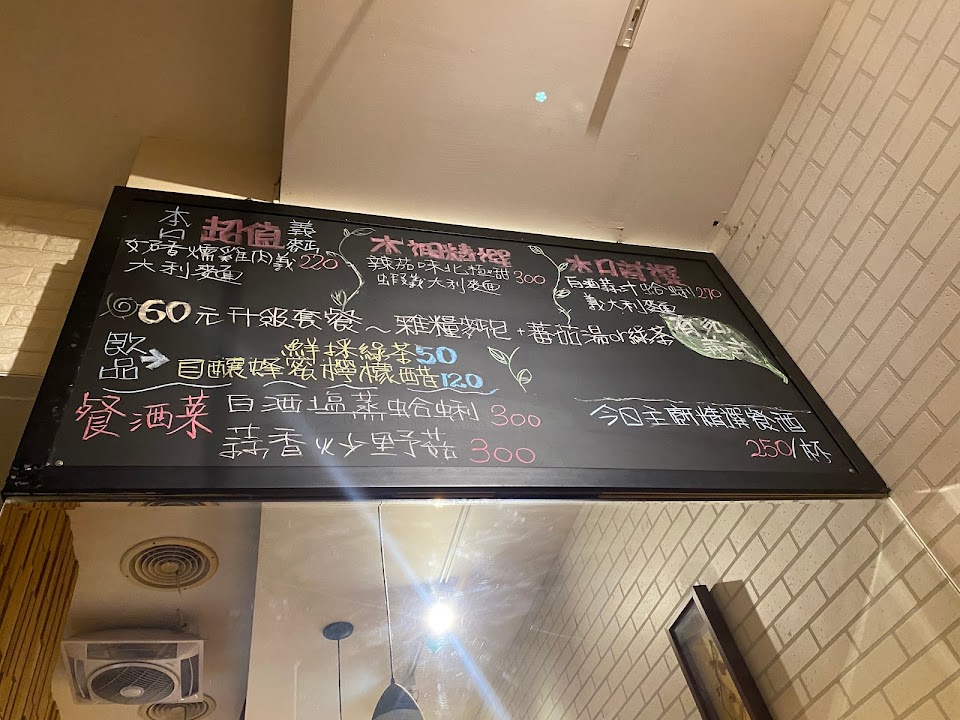 本日超值義麵
好命燻雞肉義 220
大利麵
本週精選
辣茄味北極甜 300
蝦義大利麵
本日首選
白酒蒜汁哈蜊 270
義大利麵
60元升級套餐～雜糧麵包+蕃茄湯or綠茶
飲品
鮮採綠茶50
自釀蜂蜜檸檬醋120
餐酒菜
白酒塩蒸哈蜊 300
蒜香炒野菇 300
今日主廚精選餐酒
250/杯